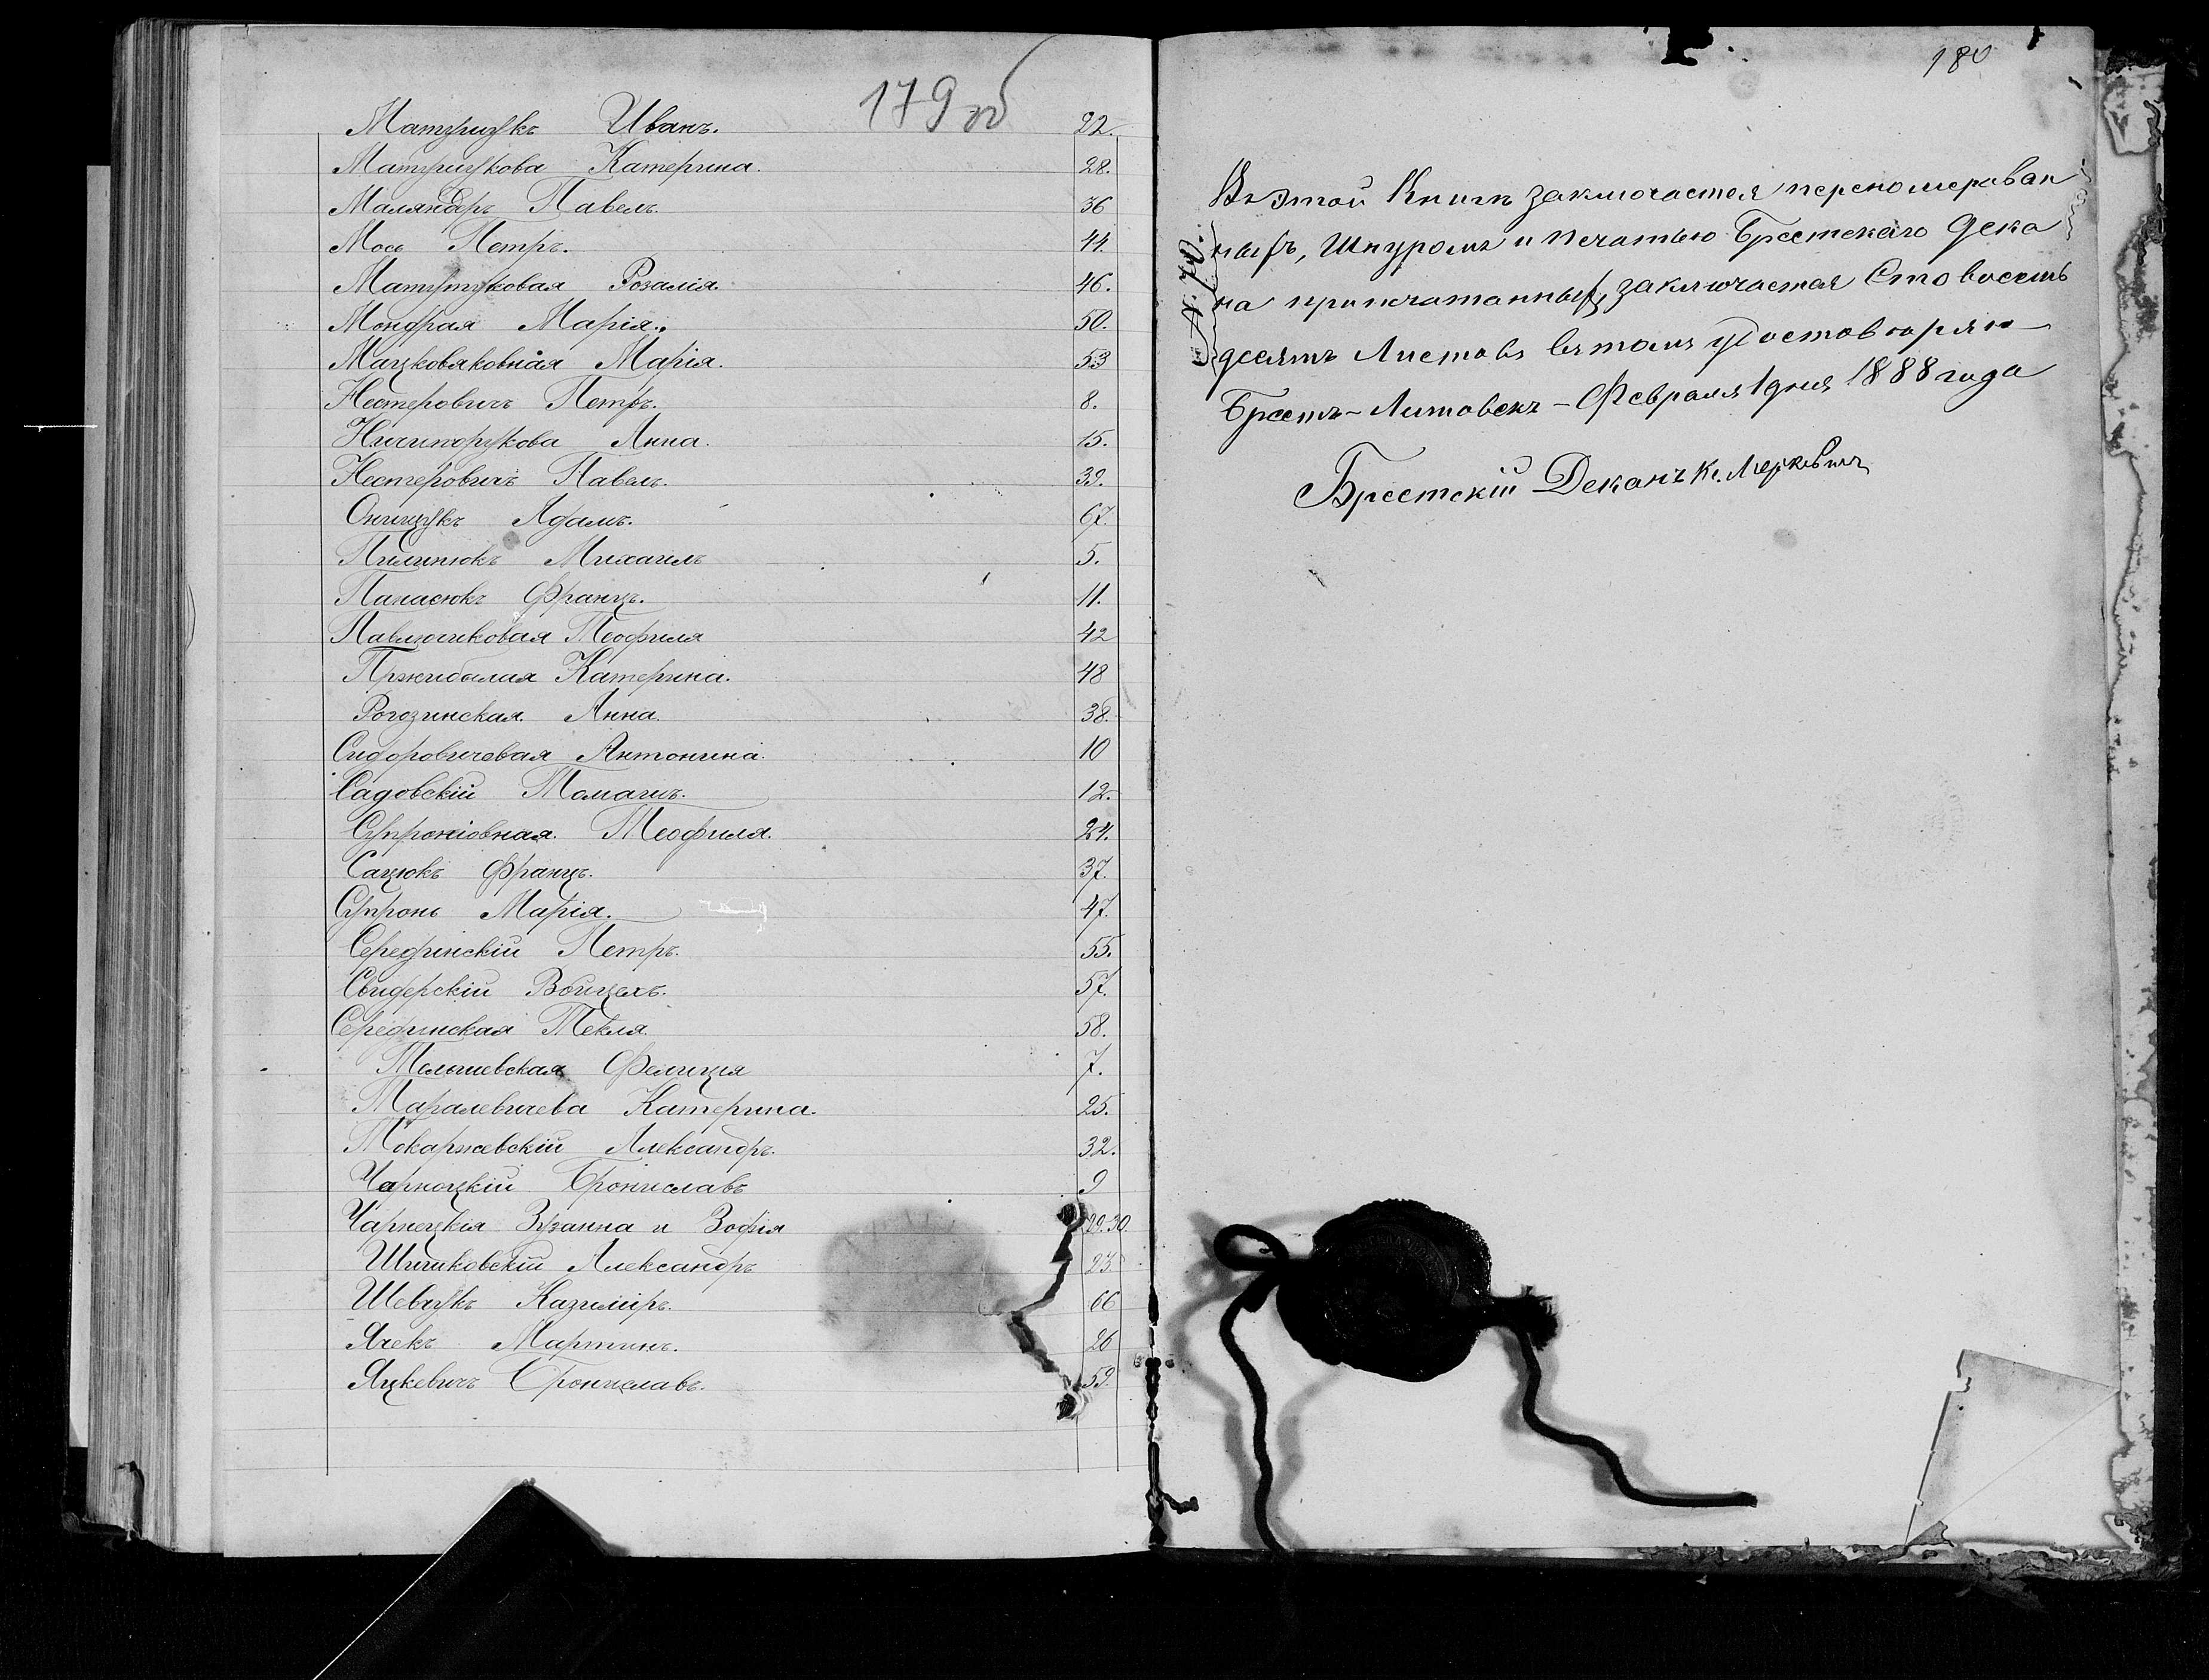 179 об
Матущукъ Иванъ. 22.
Матущукова Катерина. 28.
Маляндеръ Павелъ. 36
Мось Петръ. 44.
Розалія. 46.
Мондрая Марія. 50.
Мацковяковная Марія. 53
Нестеровичъ Петръ. 8.
Ничипорукова Анна. 15.
Нестеровичъ Павелъ. 39.
Онищукъ Адамъ. 67.
Пилипюкъ Михаилъ 5.
Панасюкъ Францъ. 11.
Павлючиковая Теофиля 42
Пржибылая Катерина. 48
Рогозинская. Анна. 38.
Сидоровичевая Антонина. 10
Садовскій Томашъ. 12.
Супроніовная. Теофиля. 24.
Сацюкъ Францъ. 37.
Супронь Марія. 47.
Серединскій Петръ. 55.
Свидерскій Войцехъ. 57.
Серединская Текля. 58.
Фелиція 7.
Таралевичева Катерина. 25.
Токаржевскій Александръ. 32.
Чарноцкій Брониславъ 9
Чарнецкія Зузанна и Зофія 29.30.
Шишковскій Александръ 23.
Шевчукъ Казиміръ. 66
Ячекъ Мартинъ. 26
Яцкевичъ Брониславъ. 59.
180
№ 70.
Въ этой Книгѣ заключается перенумерован
ныхъ, Шнуромъ и печатью Брестскаго Дека
на припечатанныхъ, заключается Сто восемь
десятъ Листовъ въ томъ удостовѣряю
Брестъ-Литовскъ - Февраля 1 дня 1888 года
Брестскій Деканъ Кс.